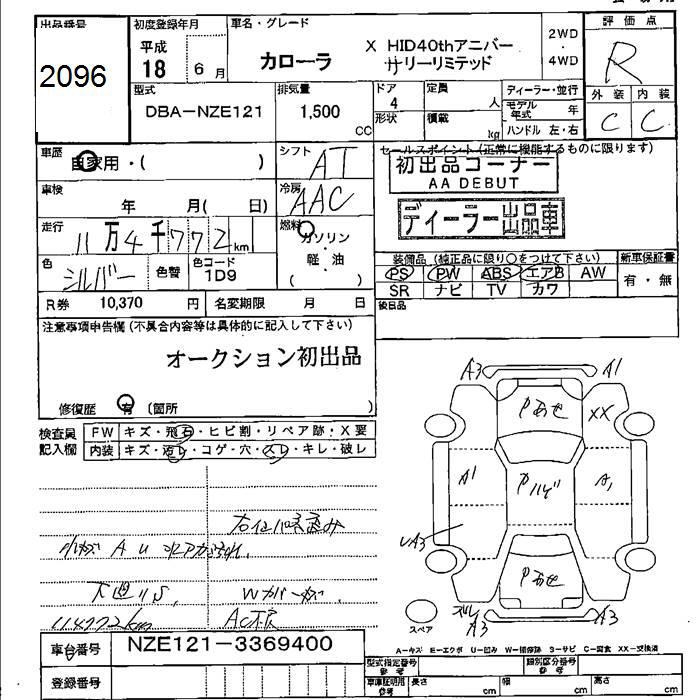 出品番号 初度登録年月 車名・グレード 評価点
2096
平成 18 6月
カローラ X HID40thアニバーサリーリミテッド
2WD・4WD
R
型式 排気量 ドア 定員 ディーラー・並行 外装 内装
DBA-NZE121 1,500 CC 4 人 モデル年式 年 C C
形状 積載 kg ハンドル 左・右
車歴 自家用・( ) シフト AT
セールスポイント(正常に機能するものに限ります)
初出品コーナー
AA DEBUT
ディーラー出品車
車検 年 月( 日) 冷房 AAC
走行 11万4千772km 燃料 ガソリン
軽・油
( )
色 シルバー 色替 色コード 1D9
装備品(純正品に限り○をつけて下さい) 新車保証書
PS PW ABS エアB AW 有・無
SR ナビ TV カワ
R券 10,370円 名変期限 月 日
後日品
注意事項申告欄(不具合内容等は具体的に記入して下さい)
オークション初出品
修復歴 有 (箇所 )
検査員記入欄
FW キズ・飛石・ヒビ割・リペア跡・X要
内装 キズ・汚レ・コゲ・穴・スレ・キレ・破レ
A3 A1
Pあせ XX
A1 Pハゲ A1
A3
Pあせ
スペア
A3 A3
小キズ A U
下廻りS, Wカバーキズ,
114772km
車台番号 NZE121-3369400
登録番号
A-キズ E-エクボ U-凹み W-補修跡 S-サビ C-腐食 XX-交換済
型式指定番号 参考 類別区分番号 参考
車庫証明用 参考 長さ cm 幅 cm 高さ cm